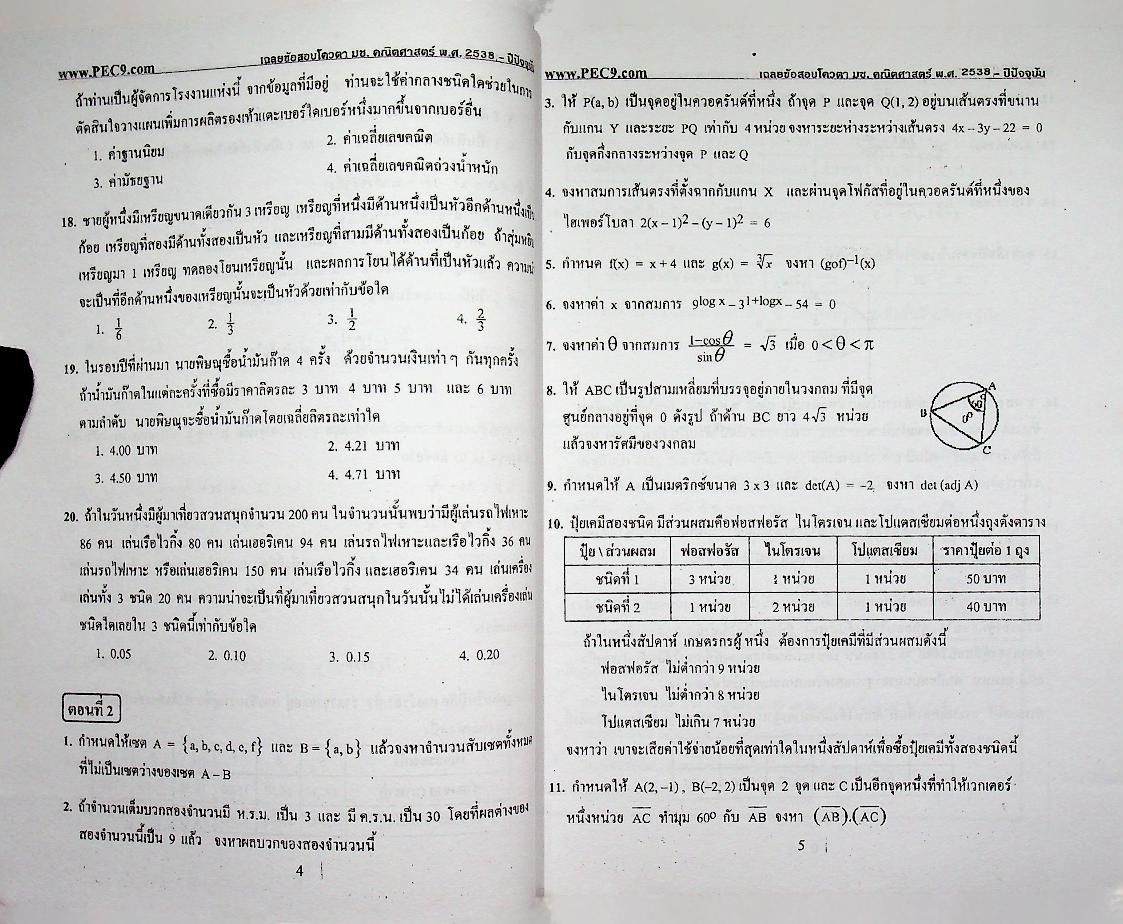 www.PEC9.com เฉลยข้อสอบโควตา มช. คณิตศาสตร์ พ.ศ. 2538 – ปีปัจจุบัน
ถ้าท่านเป็นผู้จัดการโรงงานแห่งนี้ จากข้อมูลที่มีอยู่ ท่านจะใช้ค่ากลางชนิดใดช่วยในการ
ตัดสินใจวางแผนเพิ่มการผลิตรองเท้าแตะเบอร์ใดเบอร์หนึ่งมากขึ้นจากเบอร์อื่น
1. ค่าฐานนิยม 2. ค่าเฉลี่ยเลขคณิต
3. ค่ามัธยฐาน 4. ค่าเฉลี่ยเลขคณิตถ่วงน้ำหนัก
18. ชายผู้หนึ่งมีเหรียญขนาดเดียวกัน 3 เหรียญ เหรียญที่หนึ่งมีด้านหนึ่งเป็นหัวอีกด้านหนึ่งเป็น
ก้อย เหรียญที่สองมีด้านทั้งสองเป็นหัว และเหรียญที่สามมีด้านทั้งสองเป็นก้อย ถ้าสุ่มหยิบ
เหรียญมา 1 เหรียญ ทดลองโยนเหรียญนั้น และผลการโยนได้ด้านที่เป็นหัวแล้ว ความน่า
จะเป็นที่อีกด้านหนึ่งของเหรียญนั้นจะเป็นหัวด้วยเท่ากับข้อใด
1. 1/6 2. 1/3 3. 1/2 4. 2/3
19. ในรอบปีที่ผ่านมา นายพิษณุซื้อน้ำมันก๊าด 4 ครั้ง ด้วยจำนวนเงินเท่า ๆ กันทุกครั้ง
ถ้าน้ำมันก๊าดในแต่ละครั้งที่ซื้อมีราคาลิตรละ 3 บาท 4 บาท 5 บาท และ 6 บาท
ตามลำดับ นายพิษณุจะซื้อน้ำมันก๊าดโดยเฉลี่ยลิตรละเท่าใด
1. 4.00 บาท 2. 4.21 บาท
3. 4.50 บาท 4. 4.71 บาท
20. ถ้าในวันหนึ่งมีผู้มาเที่ยวสวนสนุกจำนวน 200 คน ในจำนวนนั้นพบว่ามีผู้เล่นรถไฟเหาะ
86 คน เล่นเรือไวกิ้ง 80 คน เล่นเฮอริเคน 94 คน เล่นรถไฟเหาะและเรือไวกิ้ง 36 คน
เล่นรถไฟเหาะ หรือเล่นเฮอริเคน 150 คน เล่นเรือไวกิ้ง และเฮอริเคน 34 คน เล่นเครื่อง
เล่นทั้ง 3 ชนิด 20 คน ความน่าจะเป็นที่ผู้มาเที่ยวสวนสนุกในวันนั้นไม่ได้เล่นเครื่องเล่น
ชนิดใดเลยใน 3 ชนิดนี้เท่ากับข้อใด
1. 0.05 2. 0.10 3. 0.15 4. 0.20
ตอนที่ 2
1. กำหนดให้เซต A = {a, b, c, d, e, f} และ B = {a, b} แล้วจงหาจำนวนสับเซตทั้งหมด
ที่ไม่เป็นเซตว่างของเซต A – B
2. ถ้าจำนวนเต็มบวกสองจำนวนมี ห.ร.ม. เป็น 3 และ มี ค.ร.น. เป็น 30 โดยที่ผลต่างของ
สองจำนวนนี้เป็น 9 แล้ว จงหาผลบวกของสองจำนวนนี้
4
www.PEC9.com เฉลยข้อสอบโควตา มช. คณิตศาสตร์ พ.ศ. 2538 – ปีปัจจุบัน
3. ให้ P(a, b) เป็นจุดอยู่ในควอดรันต์ที่หนึ่ง ถ้าจุด P และจุด Q(1, 2) อยู่บนเส้นตรงที่ขนาน
กับแกน Y และระยะ PQ เท่ากับ 4 หน่วย จงหาระยะห่างระหว่างเส้นตรง 4x – 3y – 22 = 0
กับจุดกึ่งกลางระหว่างจุด P และ Q
4. จงหาสมการเส้นตรงที่ตั้งฉากกับแกน X และผ่านจุดโฟกัสที่อยู่ในควอดรันต์ที่หนึ่งของ
ไฮเพอร์โบลา 2(x – 1)² – (y – 1)² = 6
5. กำหนด f(x) = x + 4 และ g(x) = ∛x จงหา (gof)⁻¹(x)
6. จงหาค่า x จากสมการ 9^(log x) – 3^(1+logx) – 54 = 0
7. จงหาค่า θ จากสมการ (1–cosθ)/(sinθ) = √3 เมื่อ 0 < θ < π
8. ให้ ABC เป็นรูปสามเหลี่ยมที่บรรจุอยู่ภายในวงกลม ที่มีจุด
ศูนย์กลางอยู่ที่จุด 0 ดังรูป ถ้าด้าน BC ยาว 4√3 หน่วย
แล้วจงหารัศมีของวงกลม
A
60°
B
0
C
9. กำหนดให้ A เป็นเมตริกซ์ขนาด 3 x 3 และ det(A) = –2 จงหา det (adj A)
10. ปุ๋ยเคมีสองชนิด มีส่วนผสมคือฟอสฟอรัส ไนโตรเจน และโปแตสเซียมต่อหนึ่งถุงดังตาราง
ปุ๋ย \ ส่วนผสม ฟอสฟอรัส ไนโตรเจน โปแตสเซียม ราคาปุ๋ยต่อ 1 ถุง
ชนิดที่ 1 3 หน่วย หน่วย 1 หน่วย 50 บาท
ชนิดที่ 2 1 หน่วย 2 หน่วย 1 หน่วย 40 บาท
ถ้าในหนึ่งสัปดาห์ เกษตรกรผู้หนึ่ง ต้องการปุ๋ยเคมีที่มีส่วนผสมดังนี้
ฟอสฟอรัส ไม่ต่ำกว่า 9 หน่วย
ไนโตรเจน ไม่ต่ำกว่า 8 หน่วย
โปแตสเซียม ไม่เกิน 7 หน่วย
จงหาว่า เขาจะเสียค่าใช้จ่ายน้อยที่สุดเท่าใดในหนึ่งสัปดาห์เพื่อซื้อปุ๋ยเคมีทั้งสองชนิดนี้
11. กำหนดให้ A(2, –1) , B(–2, 2) เป็นจุด 2 จุด และ C เป็นอีกจุดหนึ่งที่ทำให้เวกเตอร์
หนึ่งหน่วย A͞C͞ ทำมุม 60° กับ A͞B͞ จงหา (A͞B͞).(A͞C͞)
5